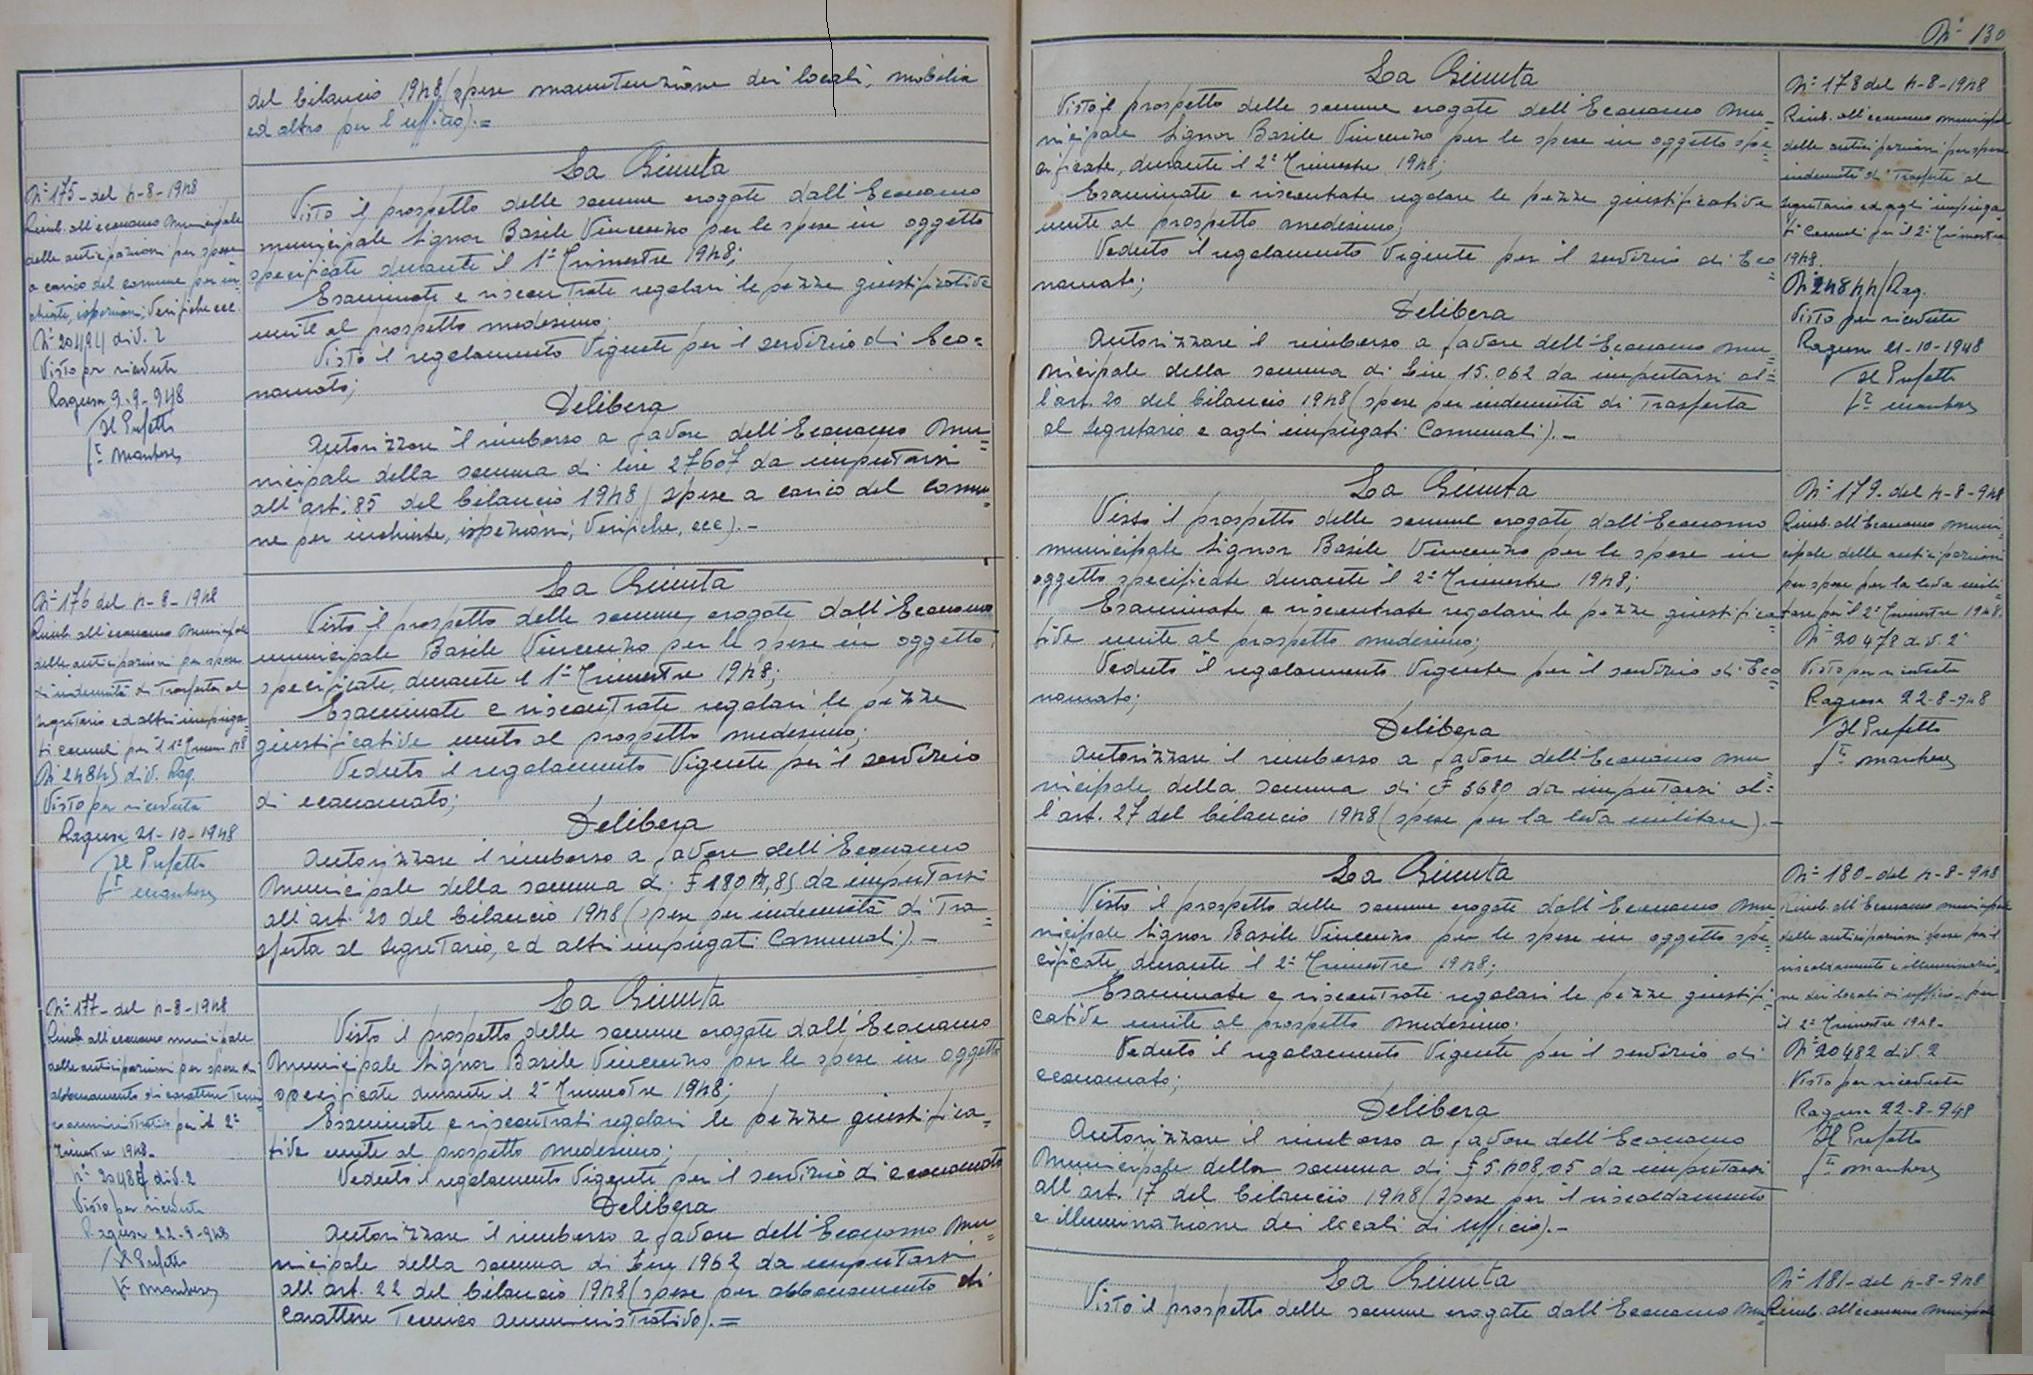 del bilancio 1948 (spese manutenzione dei locali, mobilia
ed altro per l'ufficio).=
N° 175 - del 4-8-1948
Rimb. all'economo Municipale
delle anticipazioni per spese
a carico del comune per in-
chieste, ispezioni, verifiche ecc.
div. 2
Visto per ricevuta
Ragusa 9-9-948
Il Prefetto
La Giunta
Visto il prospetto delle somme erogate dall'Economo
municipale Signor Basile Vincenzo per le spese in oggetto
specificate durante il 1° Trimestre 1948;
Esaminate e riscontrate regolari le pezze giustificative
unite al prospetto medesimo;
Visto il regolamento Vigente per il servizio di Eco=
nomato;
Delibera
Autorizzare il rimborso a favore dell'Economo Mu=
nicipale della somma di lire 27607 da imputarsi
all'art. 85 del bilancio 1948 (spese a carico del Comu=
ne per inchieste, ispezioni, Verifiche, ecc).-
N° 176 del 4-8-1948
Rimb. all'economo Municipale
delle anticipazioni per spese
di indennità di Trasferta al
segretario ed altri impiega-
ti comunali per il 1° Trim. 48
N° 24845 div. Rag.
Visto per ricevuta
Ragusa 21-10-1948
Il Prefetto
La Giunta
Visto il prospetto delle somme erogate dall'Economo
municipale Basile Vincenzo per le spese in oggetto,
specificate, durante il 1° Trimestre 1948;
Esaminate e riscontrate regolari le pezze
giustificative unite al prospetto medesimo;
Veduto il regolamento Vigente per il servizio
di economato;
Delibera
Autorizzare il rimborso a favore dell'Economo
Municipale della somma di £ 1804,85 da imputarsi
all'art. 20 del bilancio 1948 (spese per indennità di Tra=
sferta al Segretario, ed altri impiegati Comunali).-
N° 177 - del 4-8-1948
Rimb. all'economo municipale
delle anticipazioni per spese di
abbonamento di carattere Tecni-
co amministrativo per il 2°
Trimestre 1948.
div. 2
Visto per ricevuta
Ragusa 22-8-948
Il Prefetto
La Giunta
Visto il prospetto delle somme erogate dall'Economo
Municipale Signor Basile Vincenzo per le spese in oggetto
specificate durante il 2° Trimestre 1948;
Esaminate e riscontrati regolari le pezze giustifica-
tive unite al prospetto medesimo;
Veduto il regolamento Vigente per il servizio di economato
Delibera
Autorizzare il rimborso a favore dell'Economo Mu=
nicipale della somma di Lire 1962 da imputarsi
all'art. 22 del bilancio 1948 (spese per abbonamento di
carattere Tecnico amministrativo).=
N° 130
La Giunta
Visto il prospetto delle somme erogate dell'Economo Mu=
nicipale Signor Basile Vincenzo per le spese in oggetto spe=
cificate, durante il 2° Trimestre 1948;
Esaminate e riscontrate regolare le pezze giustificative
unite al prospetto medesimo;
Veduto il regolamento Vigente per il servizio di Eco=
nomato;
Delibera
Autorizzare il rimborso a favore dell'Economo Mu=
nicipale della somma di Lire 15.062 da imputarsi al=
l'art. 20 del bilancio 1948 (spese per indennità di Trasferta
al Segretario e agli impiegati Comunali).-
N° 178 del 4-8-1948
Rimb. all'economo municipale
delle anticipazioni per spese
indennità di Trasferte al
segretario ed agli impiega-
ti Comunali per il 2° Trimestre
1948.
N° 24844/Rag.
Visto per ricevuta
Ragusa 21-10-1948
Il Prefetto
La Giunta
Visto il prospetto delle somme erogate dall'Economo
municipale Signor Basile Vincenzo per le spese in
oggetto specificate durante il 2° Trimestre 1948;
Esaminate e riscontrate regolari le pezze giustifica=
tive unite al prospetto medesimo;
Veduto il regolamento Vigente per il servizio di Eco=
nomato;
Delibera
Autorizzare il rimborso a favore dell'Economo Mu=
nicipale della somma di £ 8680 da imputarsi al=
l'art. 27 del bilancio 1948 (spese per la leva militare).-
N° 179 - del 4-8-948
Rimb. all'Economo Muni-
cipale delle anticipazioni
per spese per la leva mili-
tare per il 2° Trimestre 1948.
N° 20478 div. 2°
Visto per ricevuta
Ragusa 22-8-948
Il Prefetto
La Giunta
Visto il prospetto delle somme erogate dall'Economo Mu=
nicipale Signor Basile Vincenzo per le spese in oggetto spe=
cificate, durante il 2° Trimestre 1948;
Esaminate e riscontrate regolari le pezze giustifi=
cative unite al prospetto medesimo.
Veduto il regolamento Vigente per il servizio di
economato;
Delibera
Autorizzare il rimborso a favore dell'Economo
Municipale della somma di £ 5408,05 da imputarsi
all'art. 17 del bilancio 1948 (Spese per il riscaldamento
e illuminazione dei locali di ufficio).-
N° 180 - del 4-8-948
Rimb. all'Economo Municipale
delle anticipazioni spese per il
riscaldamento e illuminazio-
ne dei locali di ufficio per
il 2° Trimestre 1948-
N° 20482 div. 2
Visto per ricevuta
Ragusa 22-8-948
Il Prefetto
La Giunta
Visto il prospetto delle somme erogate dall'Economo Mu
N° 181 - del 4-8-948
Rimb. all'economo Municipale